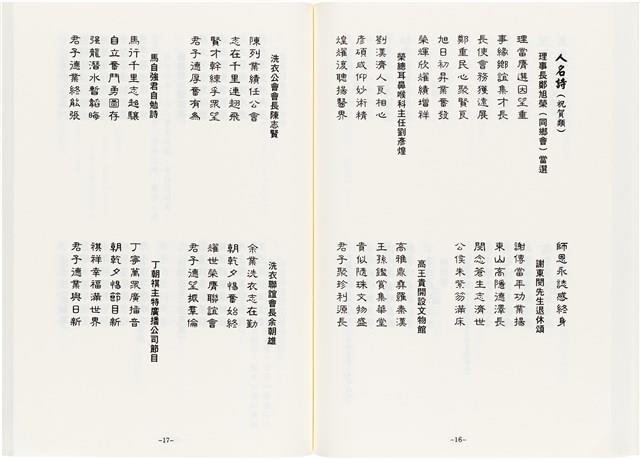 人名詩(祝賀類)
理事長鄭旭榮(同鄉會)當選
理當膺選因望重
事緣鄉誼集才長
長使會務獲進展
鄭重民心聚賢良
旭日初昇業奮發
榮輝欣耀績增祥
榮總耳鼻喉科主任劉彥煌
劉漢濟人良相心
彥碩咸仰妙術精
煌耀復聰揚醫界
師恩永誌感終身
謝東閔先生退休頌
謝傅當年功業揚
東山高隱德澤長
閔念蒼生志濟世
公侯朱紫笏滿床
高王貴開設文物館
高雅鼎彝羅秦漢
王孫鑑賞集華堂
貴似隨珠文物盛
君子聚珍利源長
-16-
洗衣公會會長陳志賢
陳列業績任公會
志在千里連翅飛
賢才幹練孚眾望
君子德厚奮有為
馬自強君自勉詩
馬行千里志超驤
自立奮鬥勇圖存
強龍潛水暫韜晦
君子德業終能張
洗衣聯誼會長余朝雄
余業洗衣志在勤
朝乾夕惕奮始終
耀世榮膺聯誼會
君子德望振羣倫
丁朝祺主特廣播公司節目
丁寧萬眾廣播音
朝乾夕惕節目新
祺祥幸福滿世界
君子德業與日新
-17-